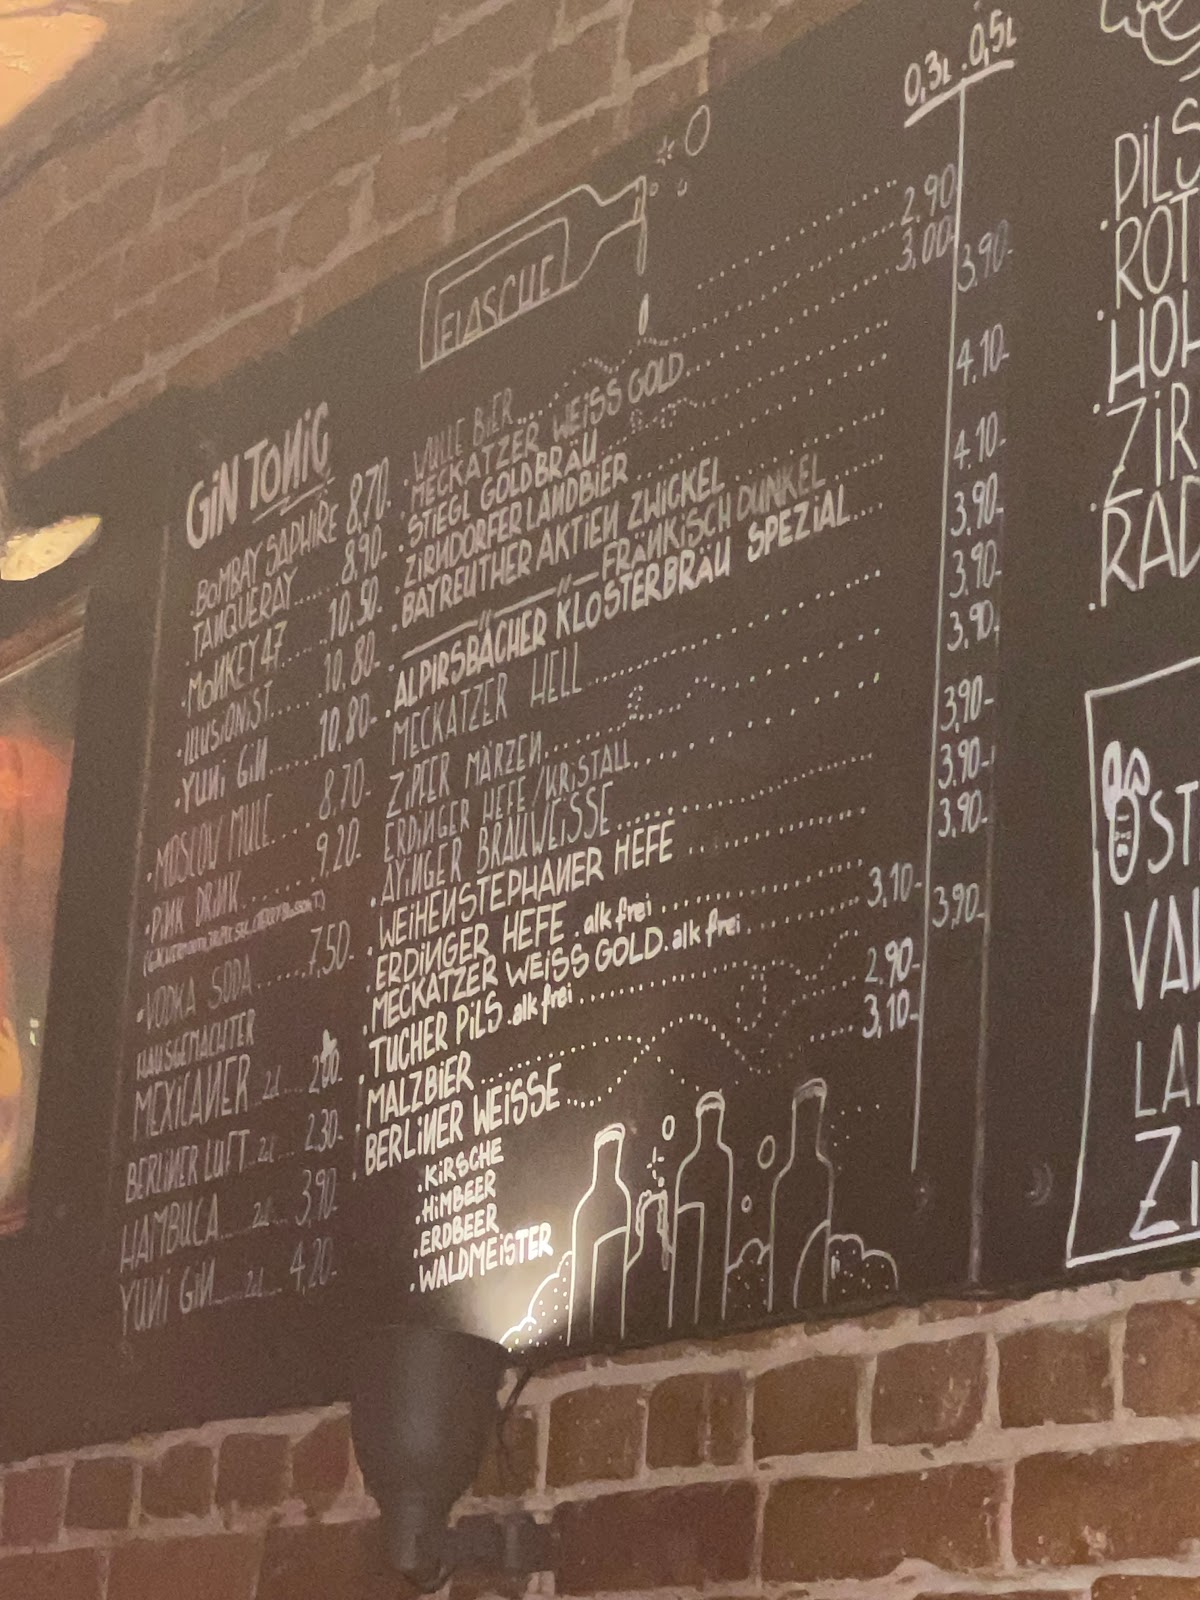 GiN TONiC
.BOMBAY SAPHIRE 8,70.
.TANQUERAY....... 8,90-
.MONKEY 47...... 10,50-
.illusionist...... 10,80-
.YUNi GiN...... 10,80-
.MOSCOW MULE.... 8,70-
.PiNK DRiNK....... 9,20-
.VODKA SODA......7,50.
HAUSGEMACHTER
MEXiCANER 2cl....
BERLiNER LUFT..2cl... 2,30-
HAMBUCA....2cl... 3,90-
YUNi GiN....2cl... 4,20-
FLASCHE
0,3L . 0,5L
.WULLE BiER.... 2.90
.MECKATZER WEiSS GOLD... 3,00-
.STiEGL GOLDBRÄU 3,90-
.ZiRNDORFER LANDBiER
.BAYREUTHER AKTiEN ZWiCKEL 4.10-
—"——"— FRÄNKiSCH DUNKEL 4.10-
.ALPiRSBÄCHER KLOSTERBRÄU SPEZiAL.... 3.90-
MECKATZER HELL 3,90-
ZiPFER MÄRZEN 3,90-
ERDiNGER HEFE/KRiSTALL 3,90-
.AYiNGER BRÄUWEiSSE 3,90-
.WEiHENSTEPHANER HEFE 3,90-
.ERDiNGER HEFE .alkfrei
.MECKATZER WEiSS GOLD.alkfrei 3,90-
.TUCHER PiLS.alkfrei 3,10-
.MALZBiER 2,90-
.BERLiNER WEiSSE 3,10-
.KiRSCHE
.HiMBEER
.ERDBEER
.WALDMEiSTER
PiLS
.ROT
.HOH
.ZiR
.RAD
ÖST
VA
LA
Z